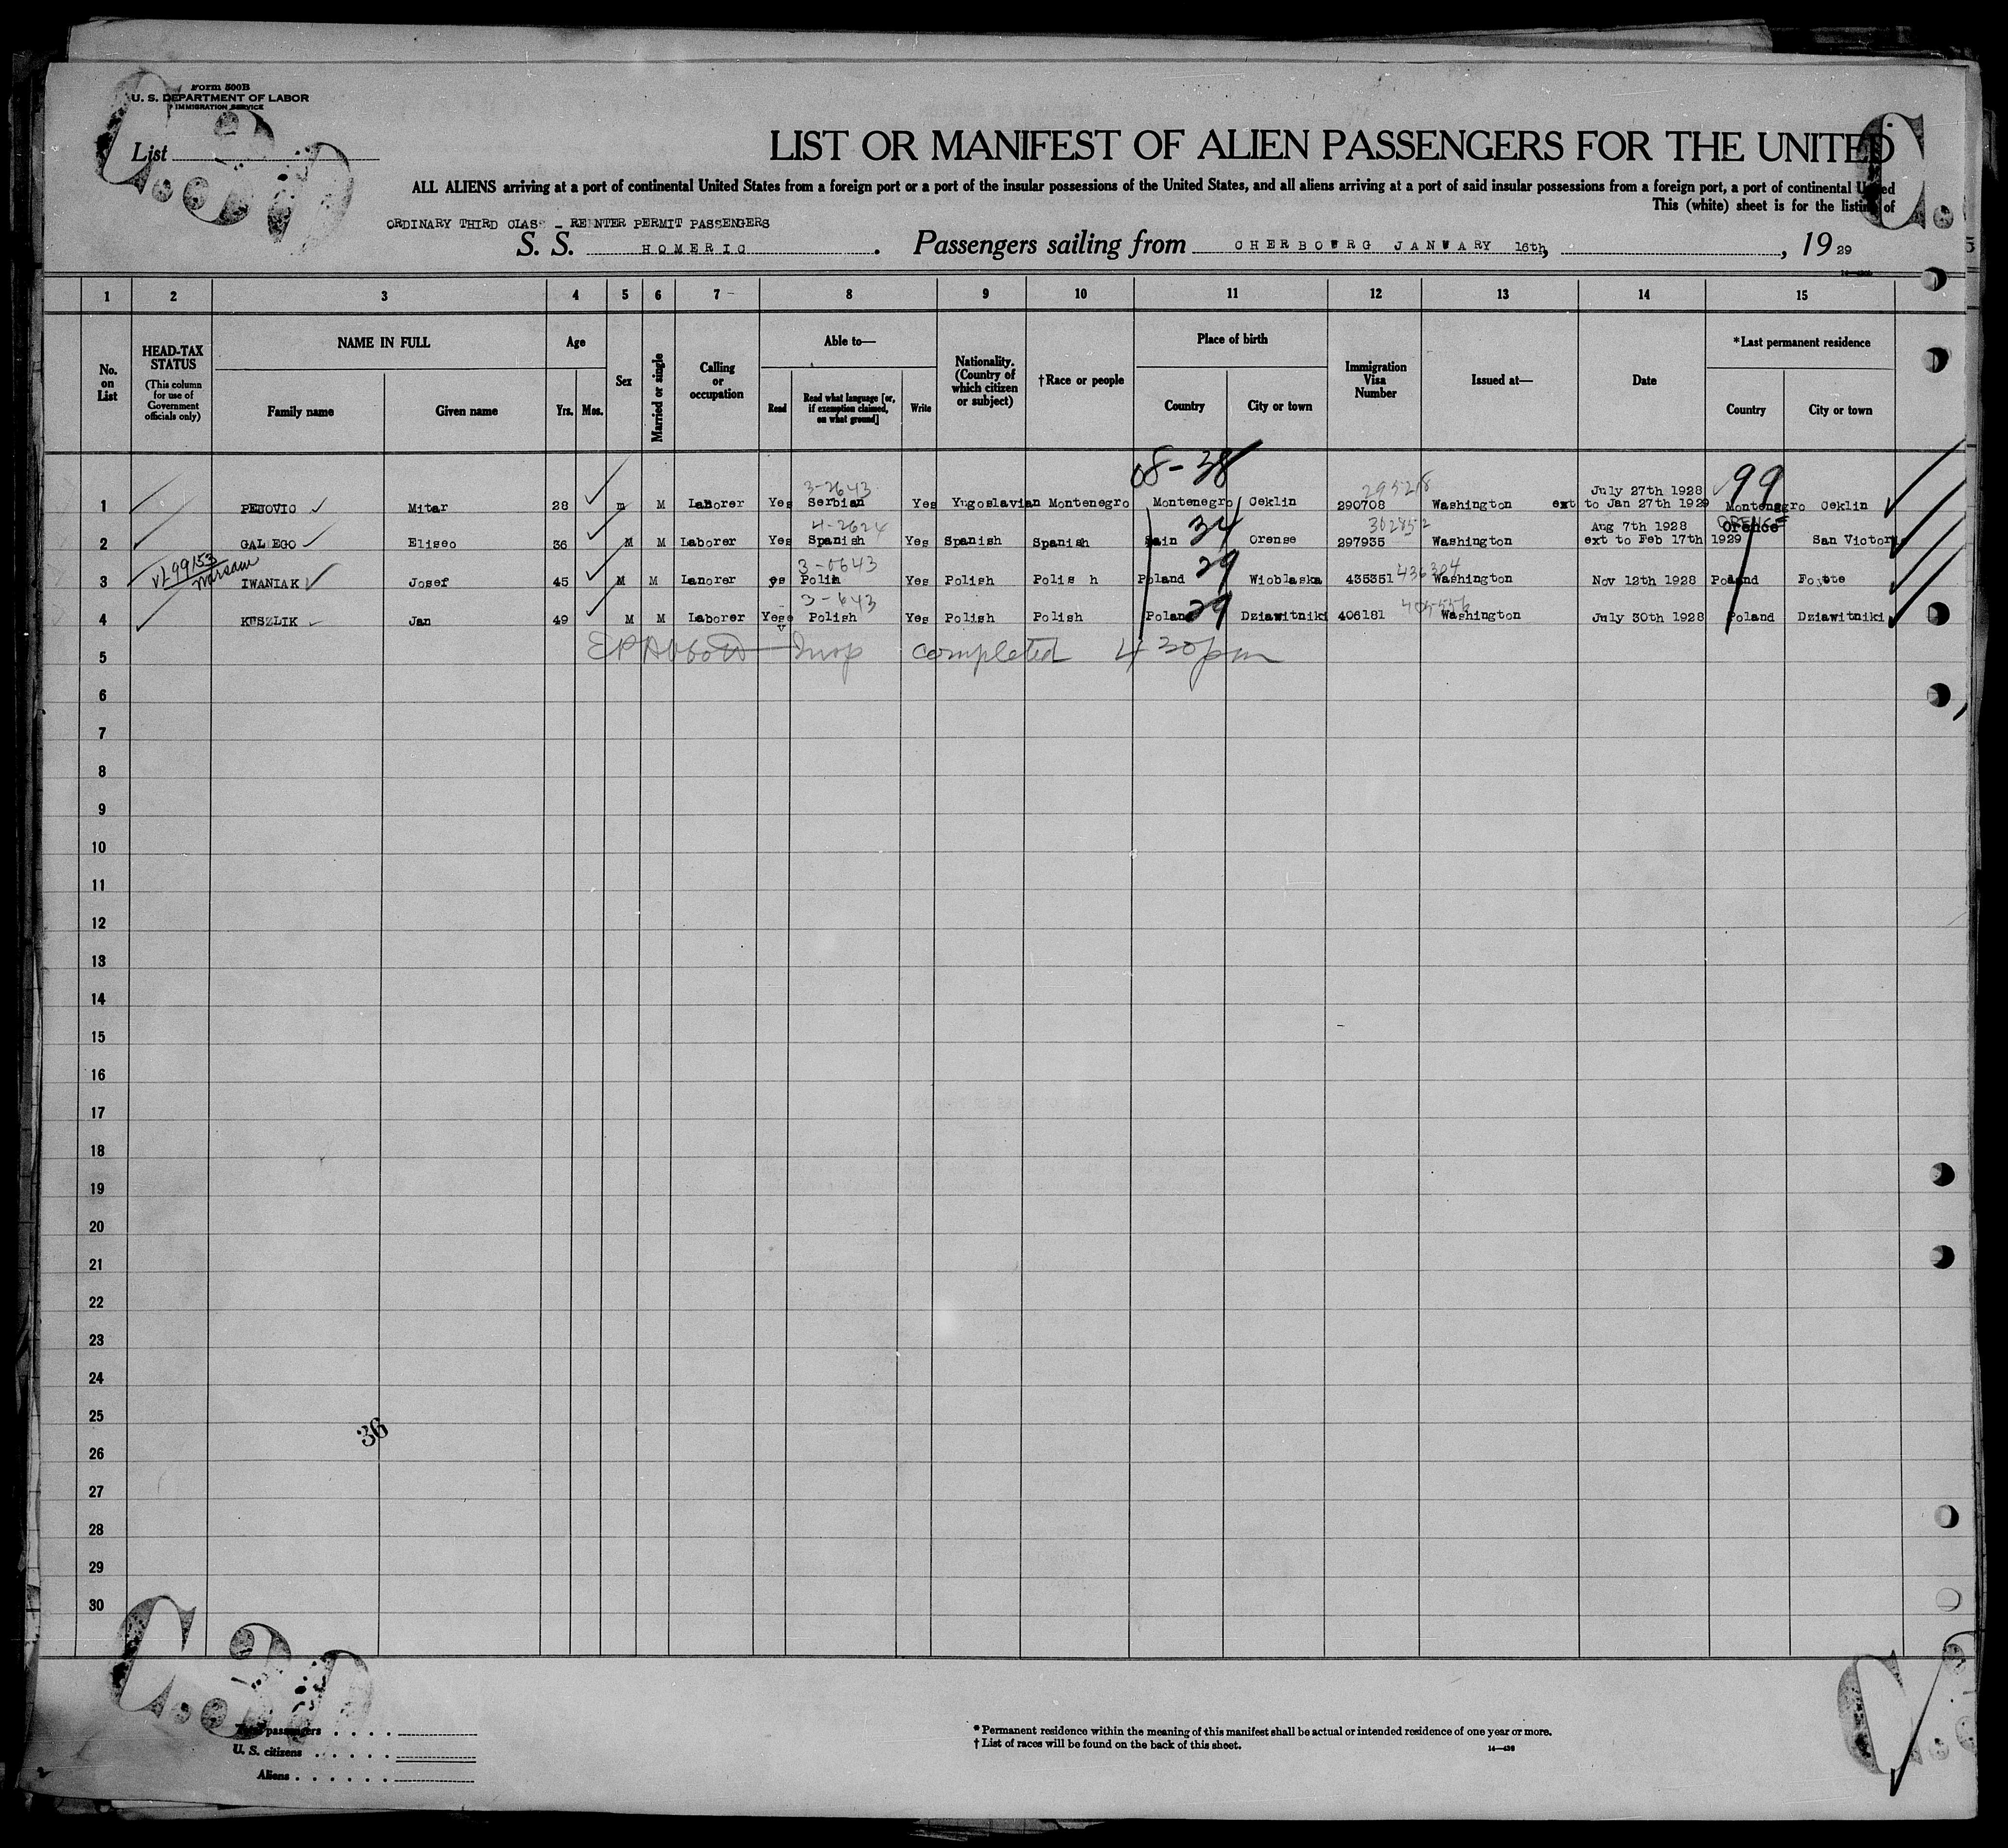 Form 500B
U. S. DEPARTMENT OF LABOR
IMMIGRATION SERVICE
List
LIST OR MANIFEST OF ALIEN PASSENGERS FOR THE UNITED
ALL ALIENS arriving at a port of continental United States from a foreign port or a port of the insular possessions of the United States, and all aliens arriving at a port of said insular possessions from a foreign port, a port of continental United
This (white) sheet is for the listing of
ORDINARY THIRD CLASS - REENTER PERMIT PASSENGERS
S. S. HOMERIC. Passengers sailing from CHERBOURG JANUARY 16th, , 19 29
1 2 3 4 5 6 7 8 9 10 11 12 13 14 15
No. on List
HEAD-TAX STATUS
(This column for use of Government officials only)
NAME IN FULL
Family name Given name
Age
Yrs. Mos.
Sex
Married or single
Calling or occupation
Able to—
Read Read what language [or, if exemption claimed, on what ground] Write
Nationality. (Country of which citizen or subject)
†Race or people
Place of birth
Country City or town
Immigration Visa Number
Issued at—
Date
*Last permanent residence
Country City or town
08-38
3-2643 295218 July 27th 1928 99
1 PEJOVIC Mitar 28 m M Laborer Yes Serbian Yes Yugoslavian Montenegro Montenegro Ceklin 290708 Washington ext to Jan 27th 1929 Montenegro Ceklin
4-2624 34 302852 Aug 7th 1928 Orence
2 GALLEGO Eliseo 36 M M Laborer Yes Spanish Yes Spanish Spanish Orense 297935 Washington ext to Feb 17th 1929 San Victori
VL99153 Warsaw 3-0643 29 436304
3 IWANIAK Josef 45 M M Lanorer Polih Yes Polish Polis h Poland Wioblaska 435351 Washington Nov 12th 1928 Poland
3-643 29 405556
4 KUSZLIK Jan 49 M M Laborer Yes Polish Yes Polish Polish Poland Dziawitniki 406181 Washington July 30th 1928 Poland Dziawitniki
5 EP Abbott Insp completed 4 30 pm
6
7
8
9
10
11
12
13
14
15
16
17
18
19
20
21
22
23
24
25
36
26
27
28
29
30
Total passengers
U. S. citizens
Aliens
* Permanent residence within the meaning of this manifest shall be actual or intended residence of one year or more.
† List of races will be found on the back of this sheet.